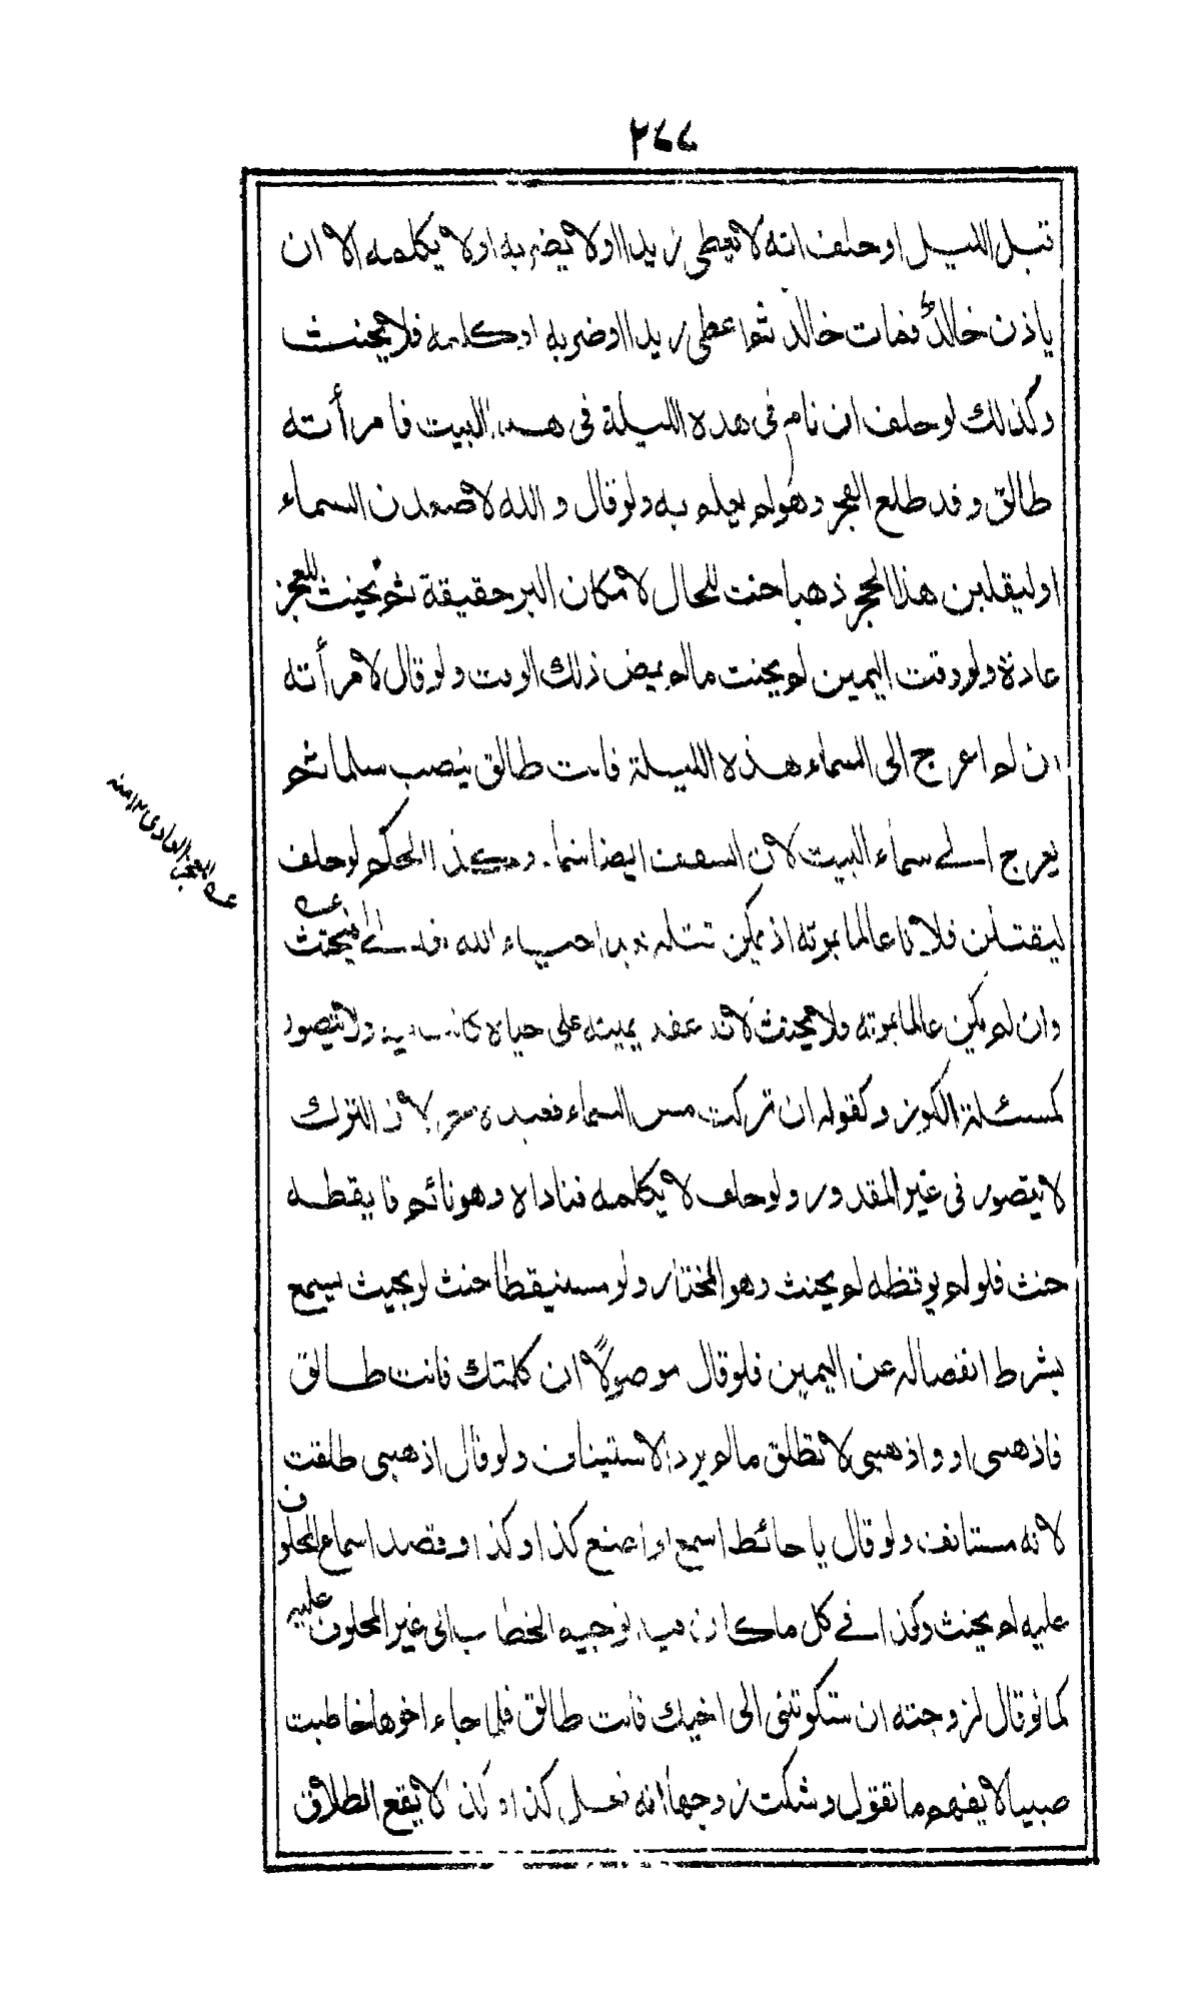 ٢٤٤
قبل الليل او حلف انه لا يعطي زيدا او لا يضربه او لا يكلمه الا ان
ياذن خالد فمات خالد ثم اعطى زيدا او ضربه او كلمه فلا يحنث
وكذلك لو حلف ان نام في هذه الليلة في هذا البيت فامرأته
طالق وقد طلع الفجر وهو لم يعلم به ولو قال والله لاصعدن السماء
او ليقلبن هذا الحجر ذهبا حنث للحال لامكان البر حقيقة ثم يحنث للعجز
عادة ولو وقت اليمين لم يحنث مالم يمض ذلك الوقت ولو قال لامرأته
ان لم اعرج الى السماء هذه الليلة فانت طالق ينصب سلما ثم
يعرج الى سماء البيت لان السقف ايضا سماء وهكذا الحكم لو حلف
ليقتلن فلانا عالما بموته اذ يمكن قتله بعد احياء الله تعالى فيحنث
عه
وان لم يكن عالما بموته فلا يحنث لانه عقد يمينه على حياة كانت فيه ولا يتصور
كمسئلة الكوز وكقوله ان تركت مس السماء فعبده حر لان الترك
لا يتصور في غير المقدور ولو حلف لا يكلمه فناداه وهو نائم فايقظه
حنث فلو لم يوقظه لم يحنث وهو المختار ولو مستيقظا حنث لو بحيث يسمع
بشرط انفصاله عن اليمين فلو قال موصولاً ان كلمتك فانت طالق
فاذهبي او واذهبي لا تطلق مالم يرد الاستيناف ولو قال اذهبي طلقت
لانه مستانف ولو قال يا حائط اسمع او اصنع كذا او كذا وقصد اسماع المحلوف
عليه لم يحنث وكذا في كل ما كان فيه توجيه الخطاب الى غير المحلوف عليه
كما لو قال لزوجته ان شكوتني الى اخيك فانت طالق فلما جاء اخوها خاطبت
صبيا لا يفهم ما تقول وشكت زوجها انه فعل كذا او كذا لا يقع الطلاق
عه للعجز العادي ١٢ منه